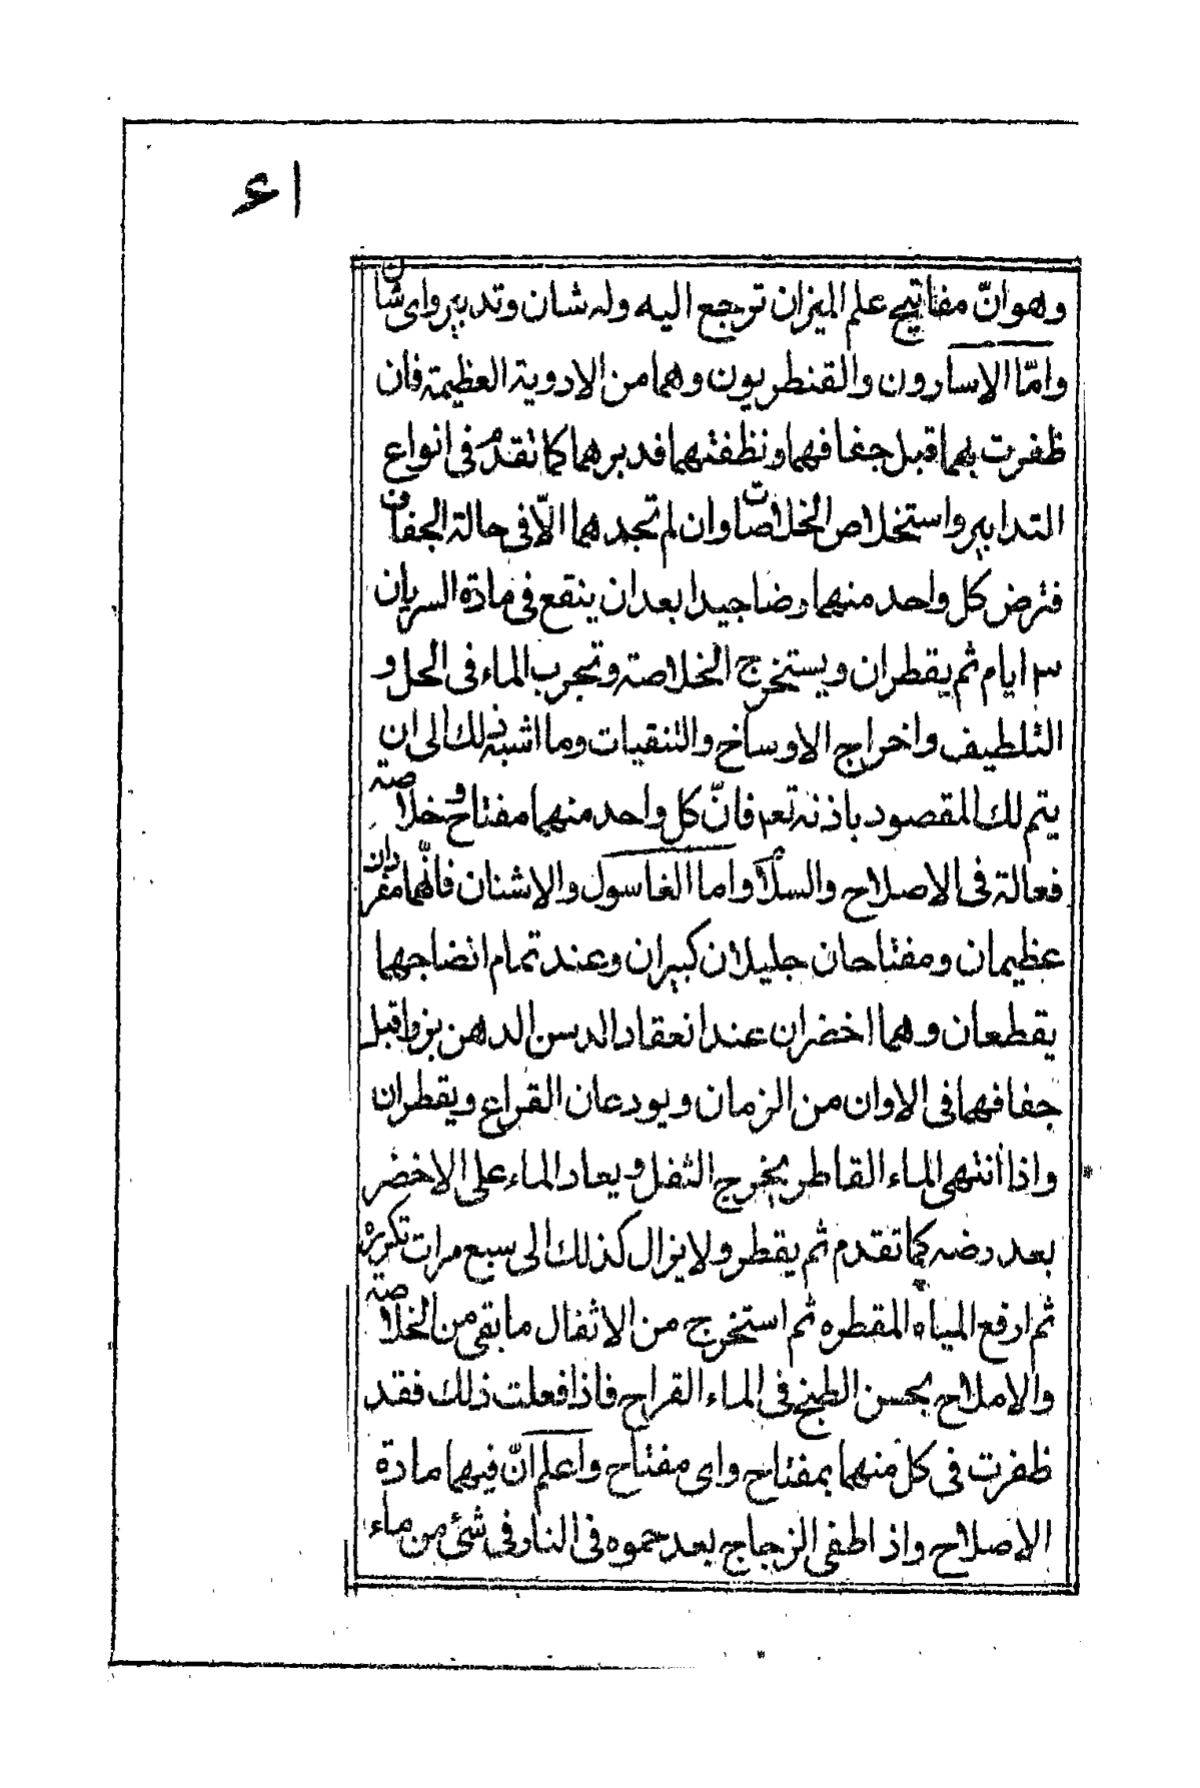 ٤١
وهو انّ مفاتيح علم الميزان ترجع اليه وله شان وتدبير واى شان
وامّا الاسارون والقنطريون وهما من الادوية العظيمة فان
ظفرت بهما قبل جفافهما ونظفتهما فدبرهما كما تقدم فى انواع
التدابير واستخلاص الخلاصات وان لم تجدهما الّا فى حالة الجفاف
فترض كل واحد منهما رضا جيدا بعد ان ينقع فى مادة السريان
٣ ايام ثم يقطران ويستخرج الخلاصة وتجرب الماء فى الحل و
التلطيف واخراج الاوساخ والتنقيات وما اشبه ذلك الى ان
يتم لك المقصود باذنه تعم فانّ كل واحد منهما مفتاح وخلاصة
فعالة فى الاصلاح والسلام واما الغاسول والاشنان فانّهما مفردان
عظيمان ومفتاحان جليلان كبيران وعند تمام انضاجهما
يقطعان وهما اخضران عند انعقاد الدسن الدهن بزوا قبل
جفافهما فى الاوان من الزمان ويودعان القراع ويقطران
واذا انتهى الماء القاطر يخرج الثفل ويعاد الماء على الاخضر
بعد رضه كما تقدم ثم يقطر ولا يزال كذلك الى سبع مرات تكرره
ثم ارفع المياه المقطره ثم استخرج من الاثفال ما بقى من الخلاصة
والاملاح بحسن الطبخ فى الماء القراح فاذا فعلت ذلك فقد
ظفرت فى كل منهما بمفتاح واى مفتاح واعلم انّ فيهما مادة
الاصلاح واذا طفى الزجاج بعد حموه فى النار فى شئ من ماء